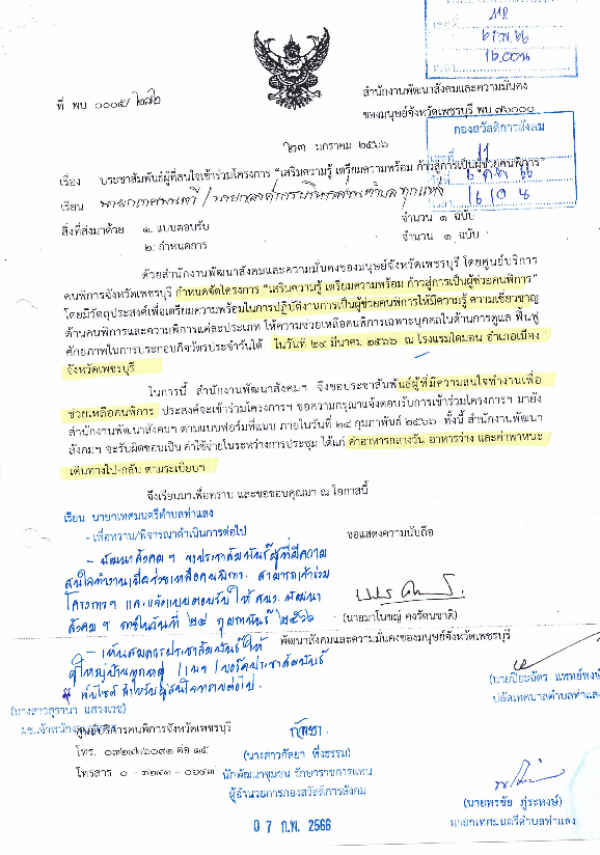 ที่ พบ ๐๐๐๕/
สำนักงานพัฒนาสังคมและความมั่นคง
ของมนุษย์จังหวัดเพชรบุรี พบ ๗๖๐๐๐
๒๓ มกราคม ๒๕๖๖
กองสวัสดิการสังคม
เรื่อง ประชาสัมพันธ์ผู้ที่สนใจเข้าร่วมโครงการ “เสริมความรู้ เตรียมความพร้อม ก้าวสู่การเป็นผู้ช่วยคนพิการ”
เรียน นายกเทศมนตรี / นายกองค์การบริหารส่วนตำบล ทุกแห่ง
สิ่งที่ส่งมาด้วย ๑. แบบตอบรับ จำนวน ๑ ฉบับ
๒. กำหนดการ จำนวน ๑ ฉบับ
ด้วยสำนักงานพัฒนาสังคมและความมั่นคงของมนุษย์จังหวัดเพชรบุรี โดยศูนย์บริการ
คนพิการจังหวัดเพชรบุรี กำหนดจัดโครงการ “เสริมความรู้ เตรียมความพร้อม ก้าวสู่การเป็นผู้ช่วยคนพิการ”
โดยมีวัตถุประสงค์เพื่อเตรียมความพร้อมในการปฏิบัติงานการเป็นผู้ช่วยคนพิการให้มีความรู้ ความเชี่ยวชาญ
ด้านคนพิการและความพิการแต่ละประเภท ให้ความช่วยเหลือคนพิการเฉพาะบุคคลในด้านการดูแล ฟื้นฟู
ศักยภาพในการประกอบกิจวัตรประจำวันได้ ในวันที่ ๒๙ มีนาคม ๒๕๖๖ ณ โรงแรมไดมอน อำเภอเมือง
จังหวัดเพชรบุรี
ในการนี้ สำนักงานพัฒนาสังคมฯ จึงขอประชาสัมพันธ์ผู้ที่มีความสนใจทำงานเพื่อ
ช่วยเหลือคนพิการ ประสงค์จะเข้าร่วมโครงการฯ ขอความกรุณาแจ้งตอบรับการเข้าร่วมโครงการฯ มายัง
สำนักงานพัฒนาสังคมฯ ตามแบบฟอร์มที่แนบ ภายในวันที่ ๒๔ กุมภาพันธ์ ๒๕๖๖ ทั้งนี้ สำนักงานพัฒนา
สังคมฯ จะรับผิดชอบเป็น ค่าใช้จ่ายในระหว่างการประชุม ได้แก่ ค่าอาหารกลางวัน อาหารว่าง และค่าพาหนะ
เดินทางไป-กลับ ตามระเบียบฯ
จึงเรียนมาเพื่อทราบ และขอขอบคุณมา ณ โอกาสนี้
เรียน นายกเทศมนตรีตำบลท่าแลง
- เพื่อทราบ/พิจารณาดำเนินการต่อไป
ขอแสดงความนับถือ
- พัฒนาสังคมฯ ขอประชาสัมพันธ์ผู้ที่มีความ
สนใจทำงานเพื่อช่วยเหลือคนพิการ สามารถเข้าร่วม
โครงการฯ และแจ้งแบบตอบรับให้ สนง. พัฒนา
สังคมฯ ภายในวันที่ ๒๔ กุมภาพันธ์ ๒๕๖๖
(นายมาโนชญ์ คงรัตนชาติ)
พัฒนาสังคมและความมั่นคงของมนุษย์จังหวัดเพชรบุรี
- เห็นสมควรประชาสัมพันธ์ให้
ผู้ใหญ่บ้านทุกหมู่
(นายปิยะฉัตร แพทย์พงษ์
ปลัดเทศบาลตำบลท่าแลง
ศูนย์บริการคนพิการจังหวัดเพชรบุรี
กัลยา
(นางสาวกัลยา พึ่งธรรม)
นักพัฒนาชุมชน รักษาราชการแทน
ผู้อำนวยการกองสวัสดิการสังคม
(นายพรชัย ภู่ระหงษ์)
นายกเทศมนตรีตำบลท่าแลง
07 ก.พ. 2566